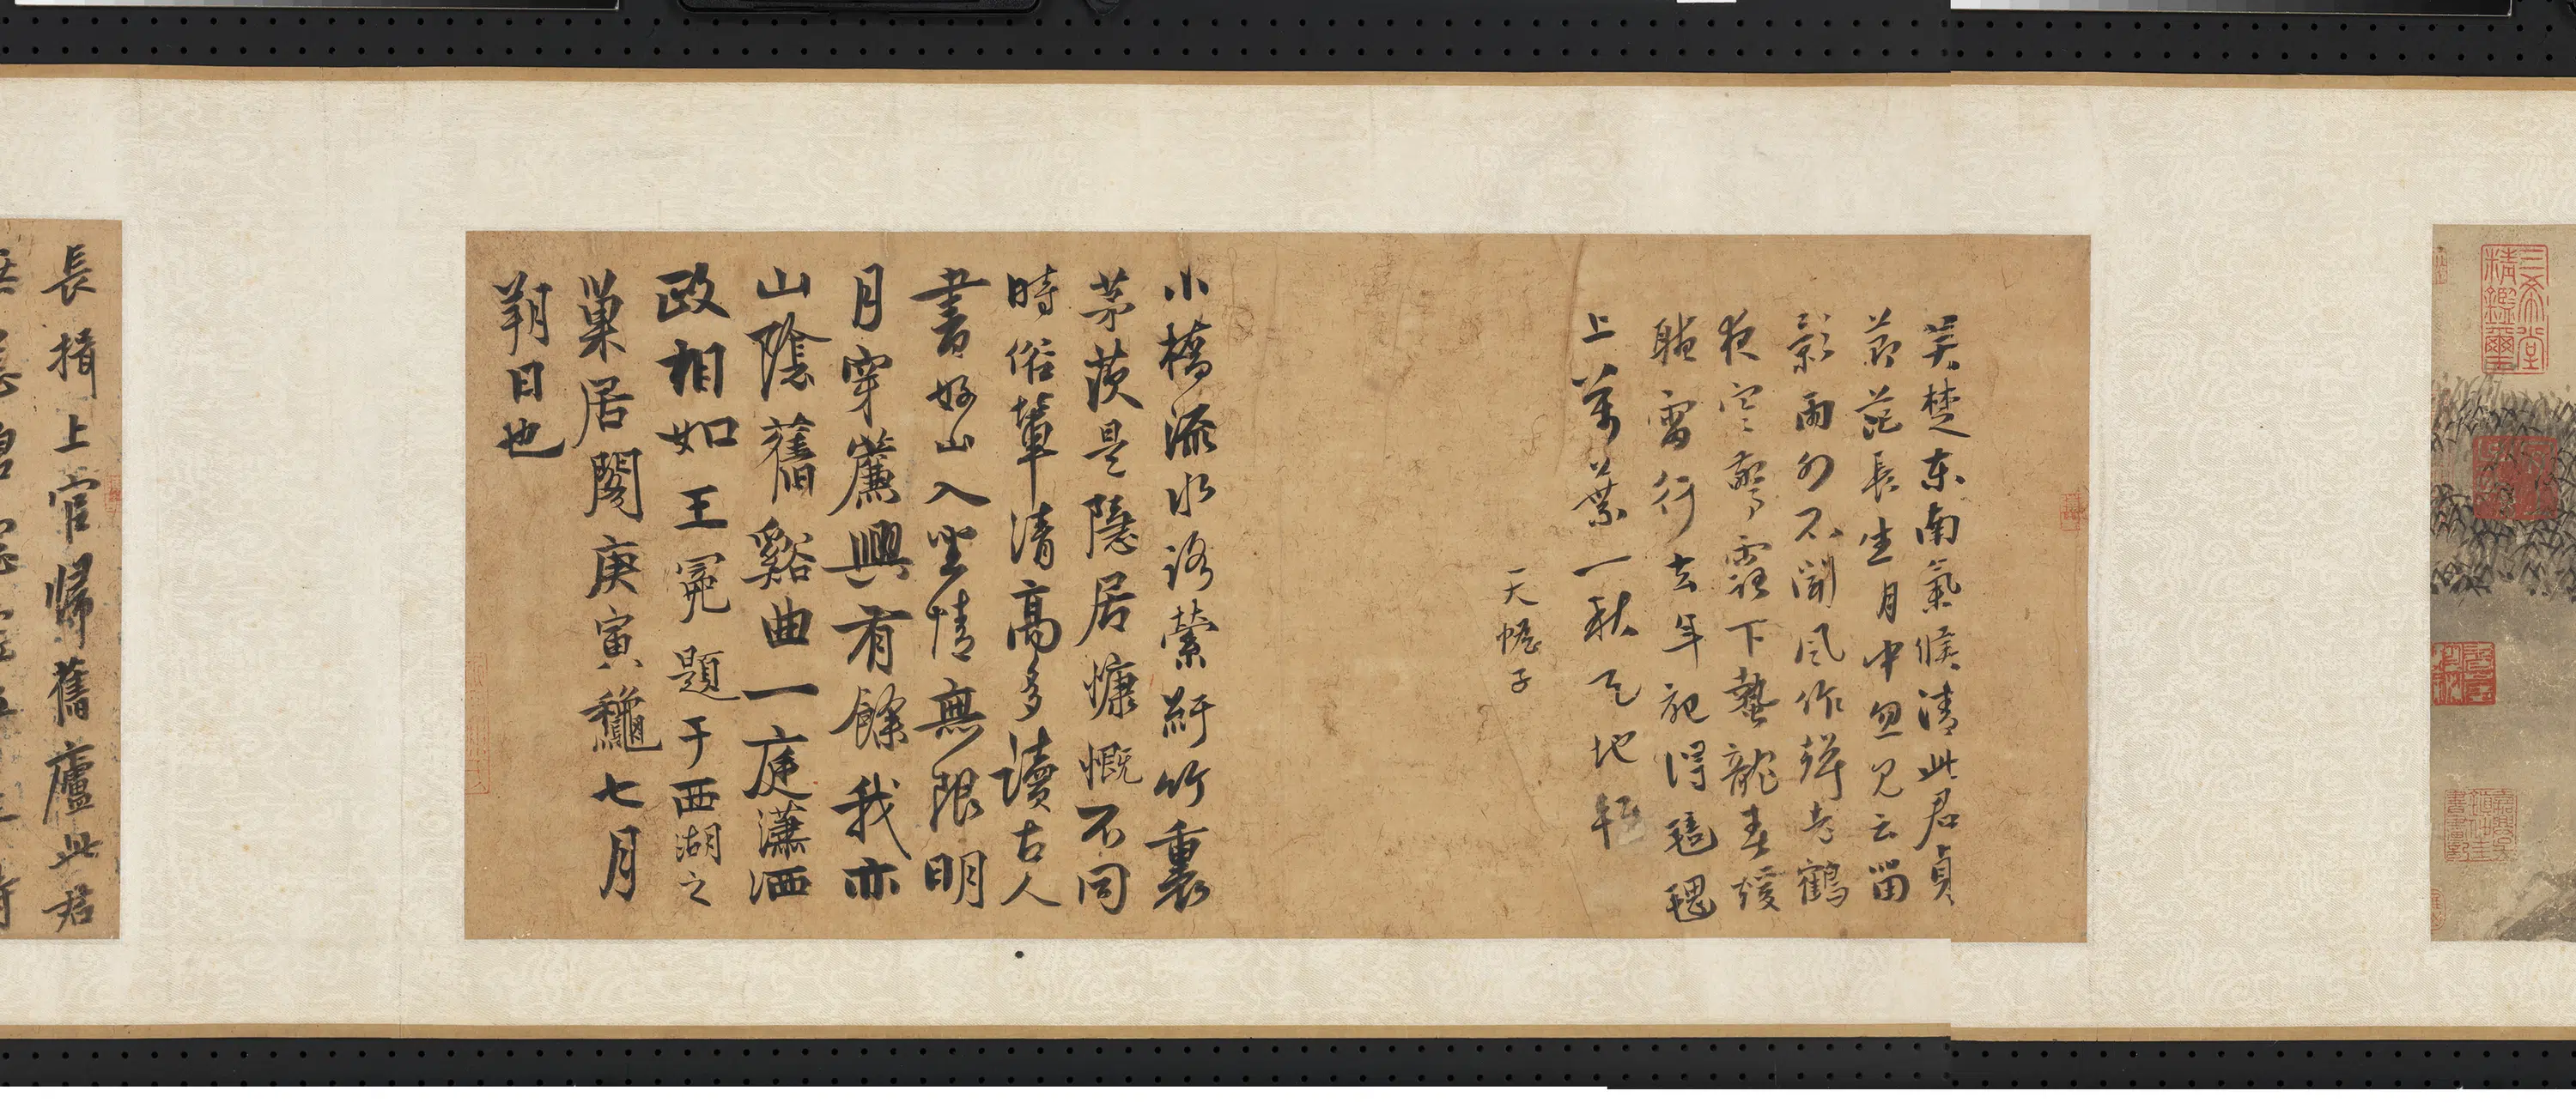 三希堂
精鑑璽
吳楚東南氣候清此君貞
節長生月中忽見云留
影雨外不聞風作聲老鶴
夜空驚露下蟄龍春暖
聽雷行去年記得
上萬葉一秋天地輕
天子
小橋流水路縈紆竹裏
茅茨是隱居慷慨不同
時俗輩清高多讀古人
書好山入坐情無限明
月穿簾興有餘我亦
山陰舊谿曲一庭瀟洒
政相如王冕題于西湖之
巢居閣庚寅龝七月
朔日也
長揖上官歸舊廬此君